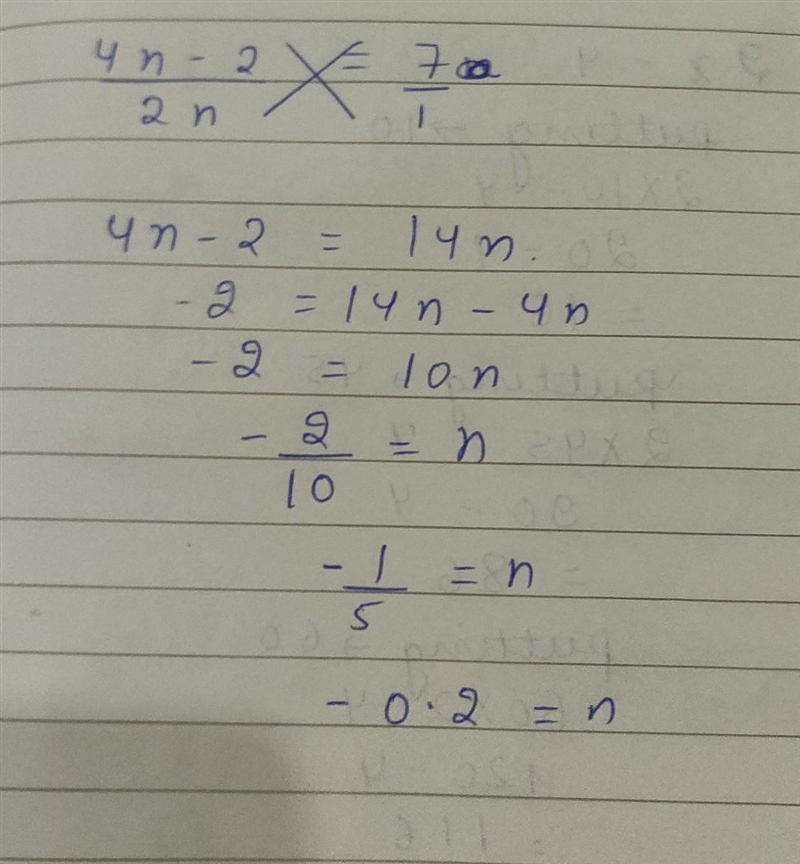 4n - 2 / 2n = 7 / 1
4n - 2 = 14n.
- 2 = 14n - 4n
- 2 = 10n
- 2/10 = n
- 1/5 = n
- 0.2 = n